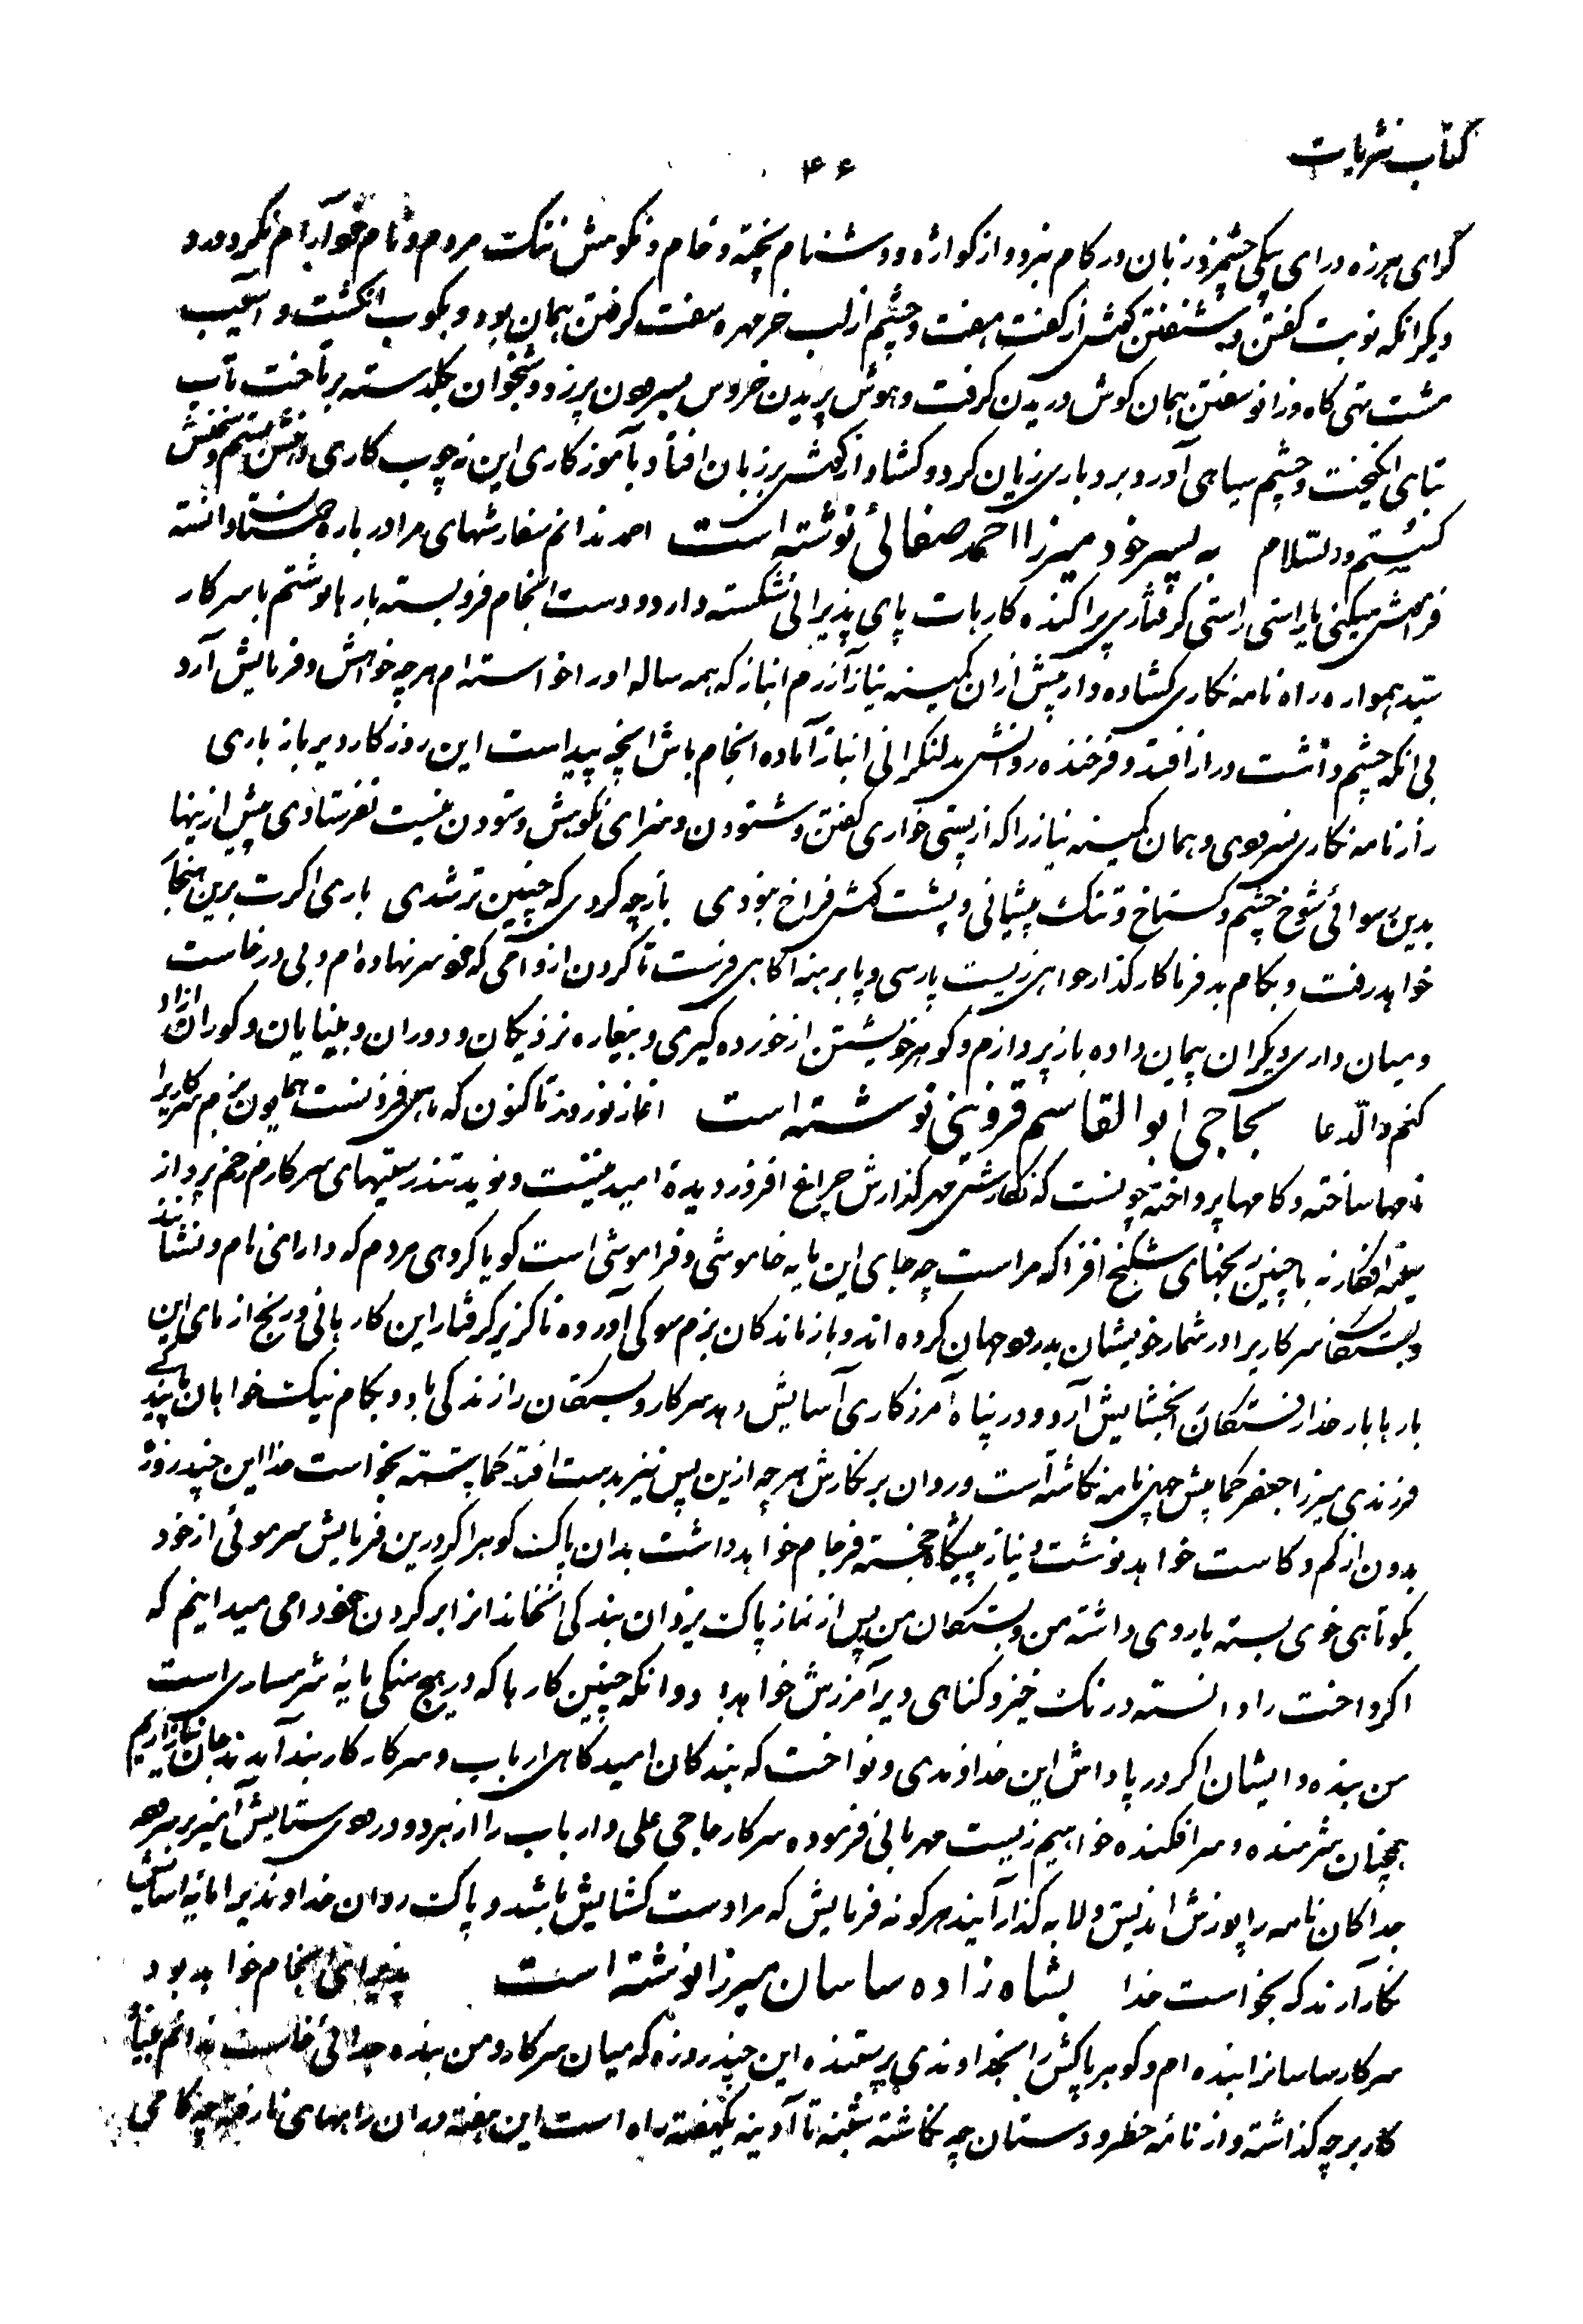 کتاب نثریات
۴۶
کوای هرزه درای یکی چشمزد زبان در کام نبرد و از کواژه و دشنام پخته و خام و نکوهش ننک مردم و نام خو آرام نکرد و درد
دیکر انکه نوبت کفتن و شنفتن کش از کفت هفت و چشم از لب خرمهره سفت کرفتن همان بود و بکوب انکشت و آسیب
مشت تهی کاه و زانو سفتن همان کوش دریدن کرفت و هوش پریدن خروس بیرهون پرزد و شخوان کلدسته برتاخت تاب
تباهی انکیخت و چشم سیاهی آورد بردباری زیان کرد و کشاد از کش بر زبان افتاد بآموزکاری این نه چوب کاری
کشیشم والسلام به پسر خود میرزا احمد صفائی نوشته است احمد ندانم سفارشهای مرا در باره دانسته
فرامش میکنی یا راستی راستی کرفتاری پراکنده کارهات پای پذیرائی شکسته دارد و دست انجام فرو بسته بارها نوشتم با سرکار
سید همواره راه نامه نکاری کشاده دار پیش ازان کمینه نیاز آزرم انباز که همه ساله او را خواسته ام هر چه خواهش و فرمایش آرد
بی انکه چشم داشت دراز افتد و فرخنده روانش بدلنکرانی انباز آماده انجام باش انچه پیداست این روزکار دیر باز باری
راز نامه نکاری نسرودی و همان کمینه نیاز را که از پستی خواری کفتن و شنودن و سزای نکوهش و ستودن نیست نفرستادی پیش ازینها
بدین رسوائی شوخ چشم و کستاخ و تنک پیشانی و پشت کش فراخ نبودی باز چه کردی که چنین تر شدی باری اکرت برین هنجار
خواهد رفت و بکام بدفرما کار کذار خواهی زیست پارسی و پا برهنه آکاهی فرست تا کردن از وامی که خود سر نهاده ام و بی درخاست
و میان داری دیکران پیمان داده باز پردازم و کوهر خویشتن از خورده کیری و بیغاره نزدیکان و دوران و بینایان و کوران آزاد
کنم والدعا بحاجی ابوالقاسم قزوینی نوشته است آغاز نوروز تا کنون که ماهی فزونست همایون بزم سرکار را
نامها ساخته و کامها پرداخته چونست که نکارشی مهر کذارش چراغ افروز دیده امید نیست و نوید تندرستیهای سرکارم زخم پرداز
سینه افکار نه با چنین رنجهای شکنج افزا که مراست چه جای این مایه خاموشی و فراموشی است کویا کروهی مردم که دارای نام و نشانند
و بستکان سرکار را در شمار خویشان بدرود جهان کرده اند و بازماندکان بزم سوکی آورده ناکزیر کرفتار این کار هائی و رنج ازمای این
بارها بار خدا رفتکان را بخشایش آرد و در پناه آمرزکاری آسایش دهد سرکار و بستکان را زندکی باد و بکام نیک خواهان پایندکی
فرزندی میرزا جعفر کمابیش چهل نامه نکاشته است و روان بر نکارش هر چه ازین پس نیز بدست افتد کما بسته بخواست خدا این چند روزه
بدون از کم و کاست خواهد نوشت و نیاز پیشکاه خجسته فرجام خواهد داشت بدان پاک کوهر اکر درین فرمایش سر موئی از خود
بکوتاهی خوی بسته یا روی داشته من و بستکان من پس از نماز پاک یزدان بندکی آنخاندانرا بر کردن خود وامی میدانیم که
اکر واخت را دانسته درنک خیزد کناهی دیر آمرزش خواهد بود و انکه چنین کارها که در هیچ سنکی مایه شرمساری است
من بنده و ایشان اکر در پاداش این خداوندی و نواخت که بندکان امیدکاهی ارباب و سرکار کار بند آمدند جان نیاز اریم
همچنان شرمنده و سرافکنده خواهیم زیست مهربانی فرموده سرکار حاجی علی و ارباب را از نبرد و درود ستایش آمیز بر سرهم
جداکان نامه را پوزش اندیش و لابه کذار آیند هر کونه فرمایش که مرا دست کشایش باشد و پاک روان خداوندیرا مایه آسایش
نکار آرند که بخواست خدا پذیرای انجام خواهد بود بشاه زاده ساسان میرزا نوشته است
سرکار ساسانرا بنده ام و کوهر پاکش را بخداوندی پرستنده این چند روزه که میان سرکار و من بنده جدائی خاست ندانم
کار بر چه کذاشته و از نامه خطر و دستان چه نکاشته شنبه تا آدینه یکهفته راه است این هفته دران راههای نارفته چه کامی